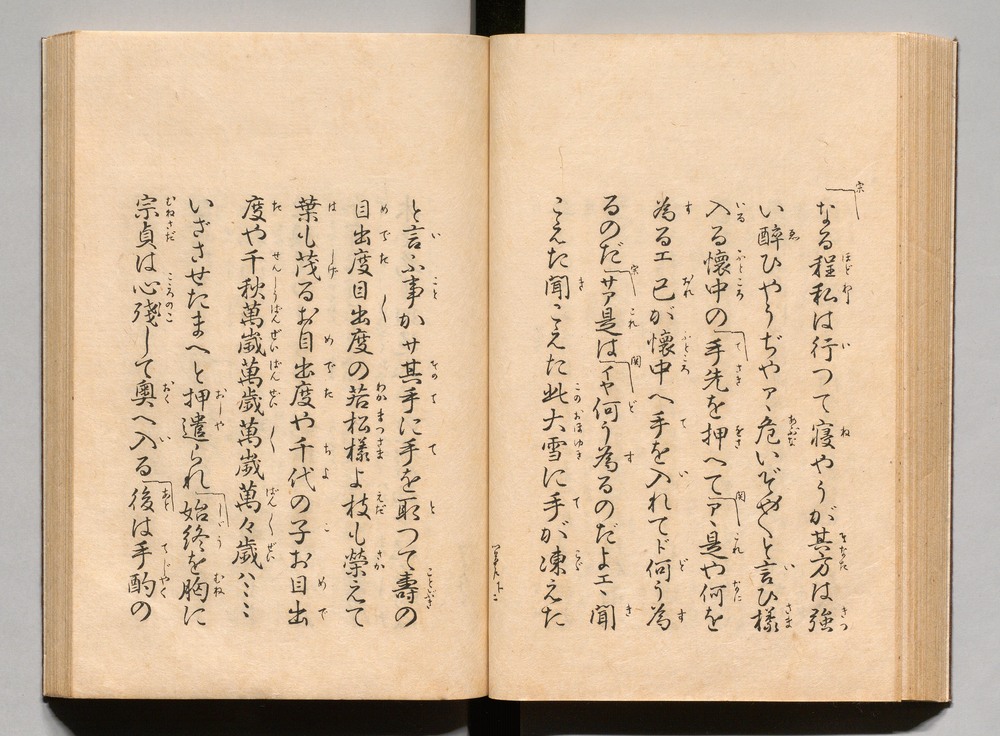 宗
なる程私は行つて寝やうが其方は強
い酔ひやうぢやアヽ危いぞや〱と言ひ様
入る懐中の手先を押へてアヽ是や何を
為るエ己が懐中へ手を入れてド何う為
るのだサア是はイヤ何う為るのだよエヽ聞
こえた聞こえた此大雪に手が凍えた
と言ふ事かサ其手に手を取つて壽の
目出度目出度の若松様よ枝も榮えて
葉も茂るお目出度や千代の子お目出
度や千秋萬歳萬歳萬歳萬々歳ハヽヽ
いざさせたまへと押遣られ始終を胸に
宗貞は心残して奥へ入る後は手酌の